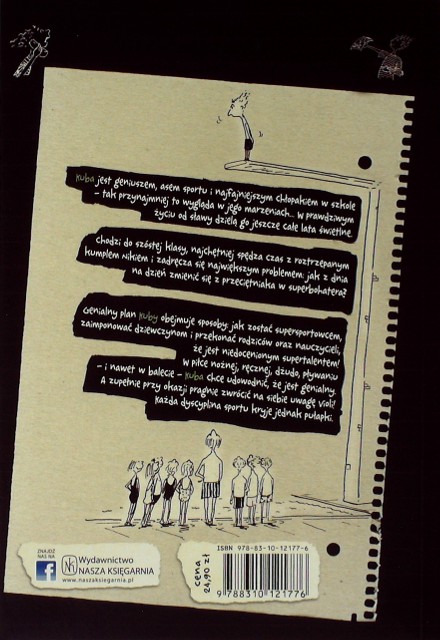 Kuba jest geniuszem, asem sportu i najfajniejszym chłopakiem w szkole
– tak przynajmniej to wygląda w jego marzeniach... w prawdziwym
życiu od sławy dzielą go jeszcze całe lata świetlne.
Chodzi do szóstej klasy, najchętniej spędza czas z roztrzepanym
kumplem Nikiem i zadręcza się największym problemem: jak z dnia
na dzień zmienić się z przeciętniaka w superbohatera?
Genialny plan Kuby obejmuje sposoby, jak zostać supersportowcem,
zaimponować dziewczynom i przekonać rodziców oraz nauczycieli,
że jest niedocenionym supertalentem!
W piłce nożnej, ręcznej, dżudo, pływaniu
– i nawet w balecie – Kuba chce udowodnić, że jest genialny.
A zupełnie przy okazji pragnie zwrócić na siebie uwagę Violi!
Każda dyscyplina sportu kryje jednak pułapki.
ZNAJDŹ
NAS NA
f
NK
Wydawnictwo
NASZA KSIĘGARNIA
www.naszaksiegarnia.pl
cena
24,90 zł
ISBN 978-83-10-12177-6
9 788310 121776